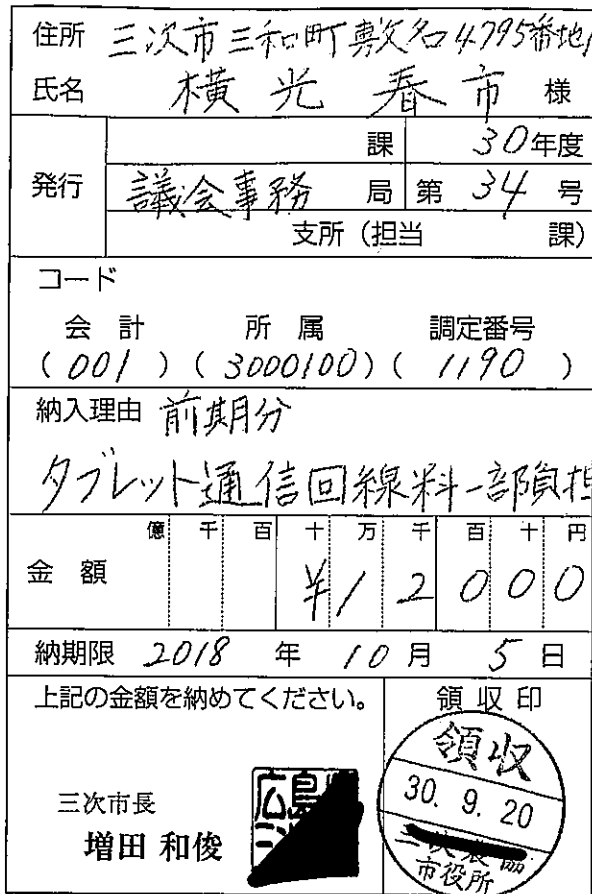 住所 三次市三和町敷名4795番地1
氏名 横光春市 様
課 30年度
発行 議会事務 局 第 34 号
支所（担当 課）
コード
会計 所属 調定番号
（001）（3000100）（1190）
納入理由 前期分
タブレット通信回線料一部負担
億 千 百 十 万 千 百 十 円
金額 ¥12000
納期限 2018 年 10 月 5 日
上記の金額を納めてください。 領収印
三次市長
増田 和俊
広島
領収
30. 9. 20
市役所